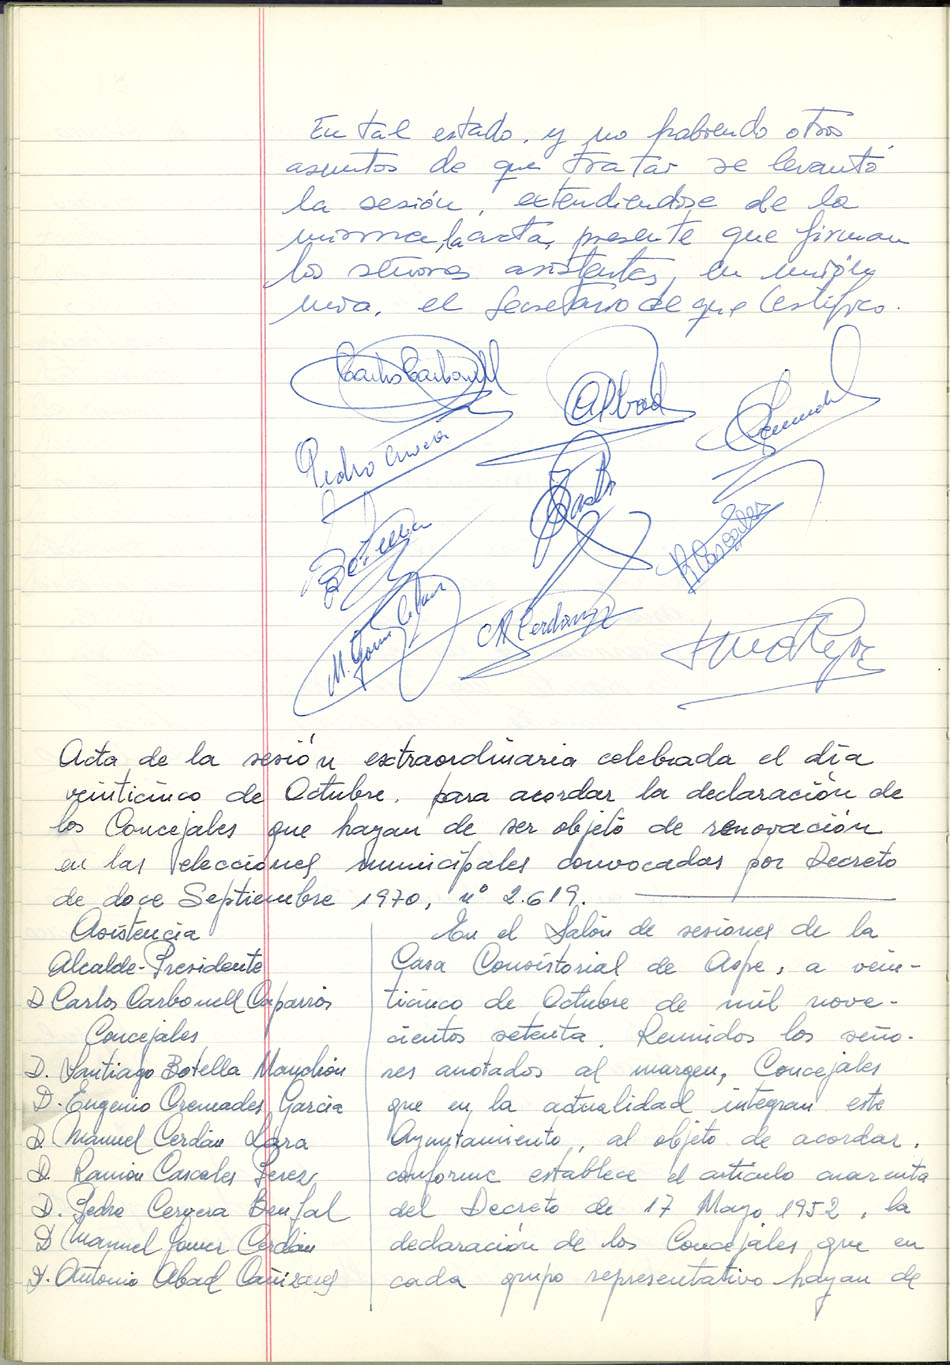 En tal estado, y no habiendo otros
asuntos de que tratar se levantó
la sesión, extendiendose de la
misma, la acta, presente que firman
los señores asistentes, en unión
mia, el Secretario de que Certifico.
Carlos Carbonell
A Abad
Pedro Cervera
Botella
R Cascales
M. Gomer Cerdan
M Cerdan
Acta de la sesión extraordinaria celebrada el día
veinticinco de Octubre, para acordar la declaración de
los Concejales que hayan de ser objeto de renovación
en las elecciones municipales convocadas por Decreto
de doce Septiembre 1970, nº 2.619.
Asistencia
Alcalde-Presidente
D Carlos Carbonell Caparros
Concejales
D. Santiago Botella Mandión
D. Eugenio Cremades Garcia
D. Manuel Cerdán Lara
D. Ramón Cascales Perez
D. Pedro Cervera
D Manuel Gomer Cerdán
D. Antonio Abad Cañizares
En el Salón de sesiones de la
Casa Consistorial de Aspe, a vein-
ticinco de Octubre de mil nove-
cientos setenta. Reunidos los seño-
res anotados al margen, Concejales
que en la actualidad integran este
Ayuntamiento, al objeto de acordar,
conforme establece el artículo cuarenta
del Decreto de 17 Mayo 1952, la
declaración de los Concejales que en
cada grupo representativo hayan de